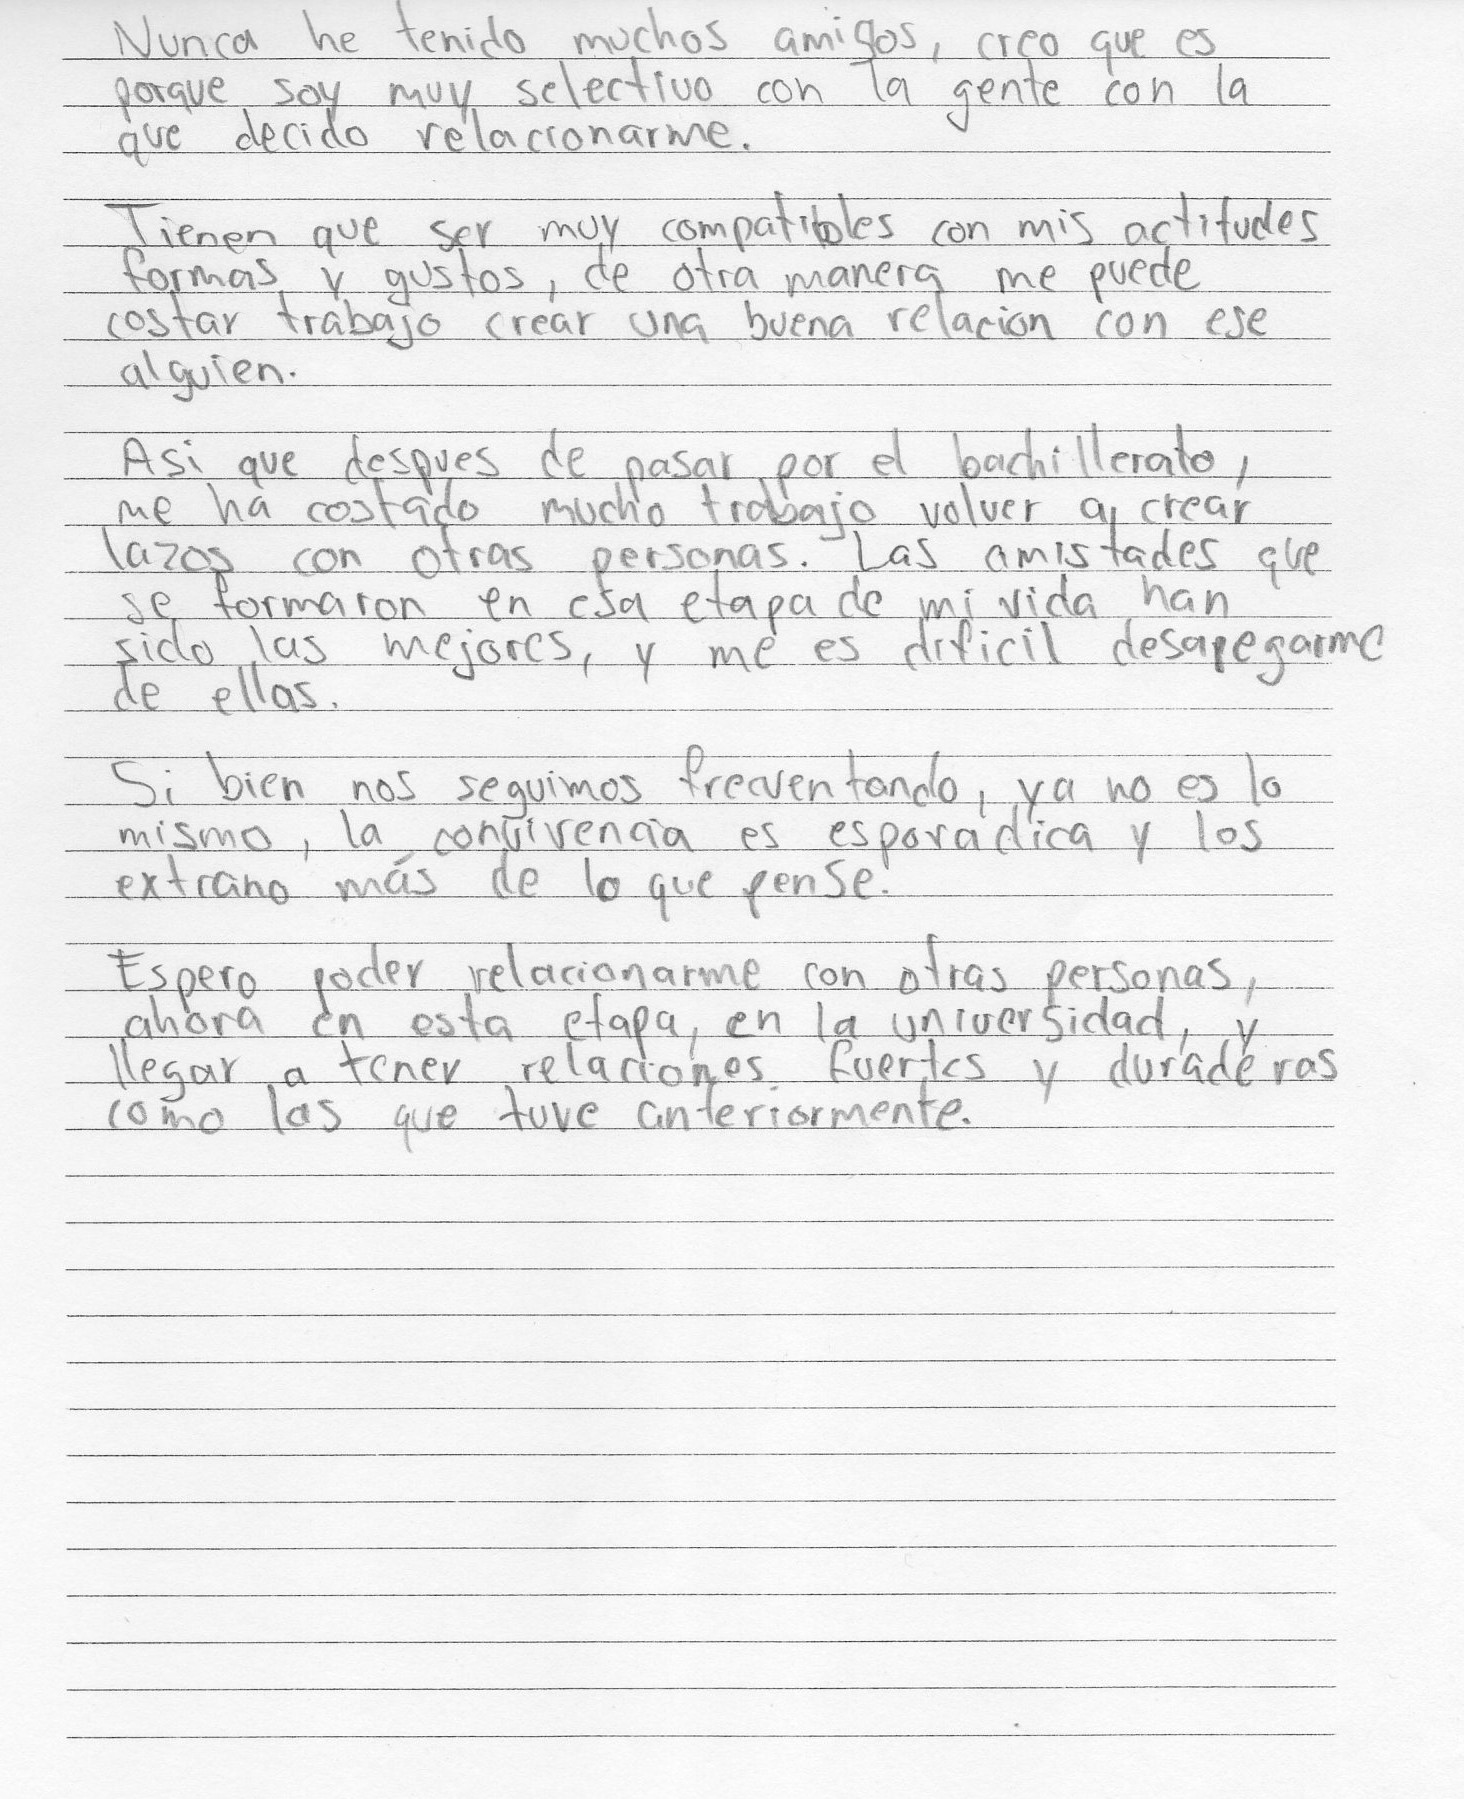 Nunca he tenido muchos amigos, creo que es
porque soy muy selectivo con la gente con la
que decido relacionarme.
Tienen que ser muy compatibles con mis actitudes
formas y gustos, de otra manera me puede
costar trabajo crear una buena relacion con ese
alguien.
Asi que despues de pasar por el bachillerato,
me ha costado mucho trabajo volver a crear
lazos con otras personas. Las amistades que
se formaron en esa etapa de mi vida han
sido las mejores, y me es dificil desapegarme
de ellas.
Si bien nos seguimos frecuentando, ya no es lo
mismo, la convivencia es esporadica y los
extrano más de lo que pense.
Espero poder relacionarme con otras personas,
ahora en esta etapa, en la universidad, y
llegar a tener relaciones fuertes y duraderas
como las que tuve anteriormente.